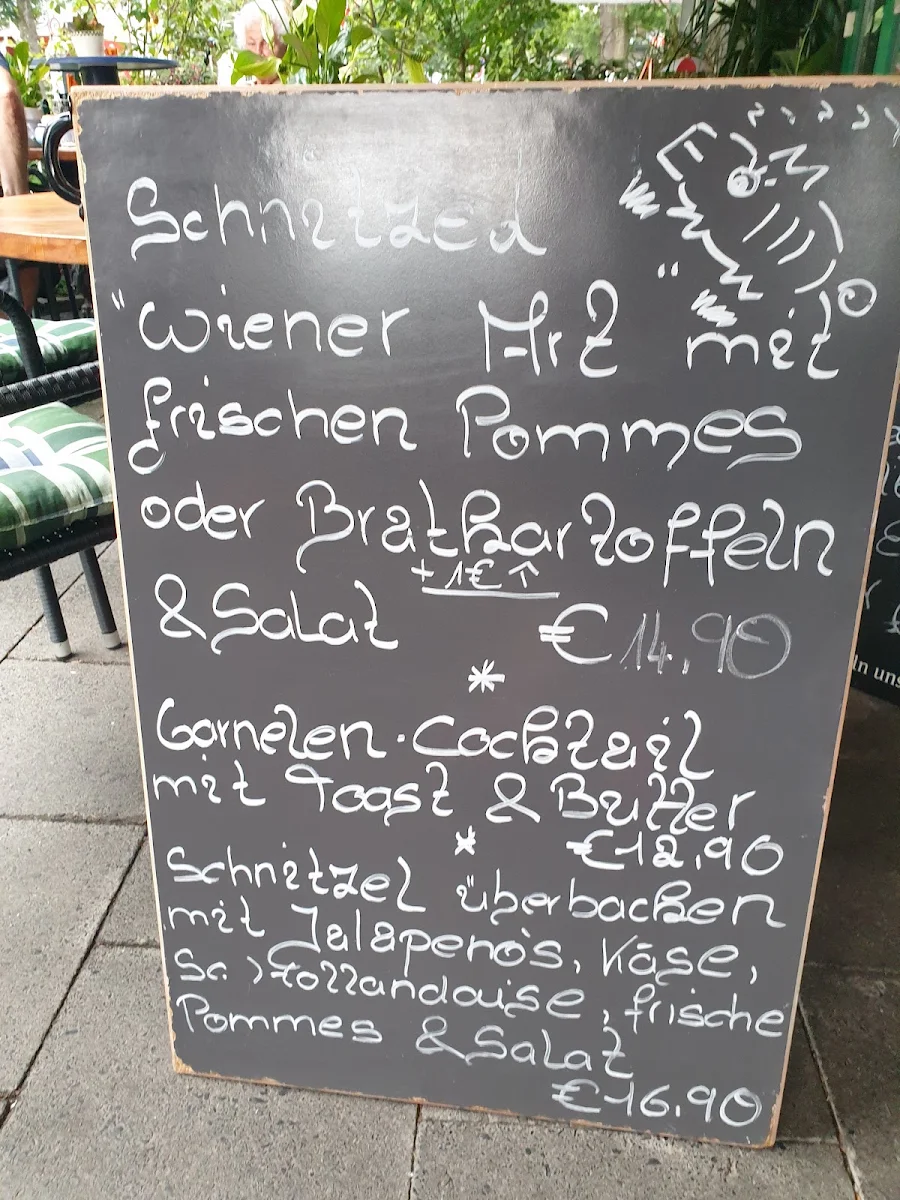 Schnitzel
"Wiener Art" mit
frischen Pommes
oder Bratkartoffeln
+ 1€ ↑
& Salat € 14,90
*
Garnelen-Cocktail
mit Toast & Butter
* €12,90
Schnitzel überbacken
mit Jalapeno's, Käse,
Sc. Hollandaise, frische
Pommes & Salat
€16.90